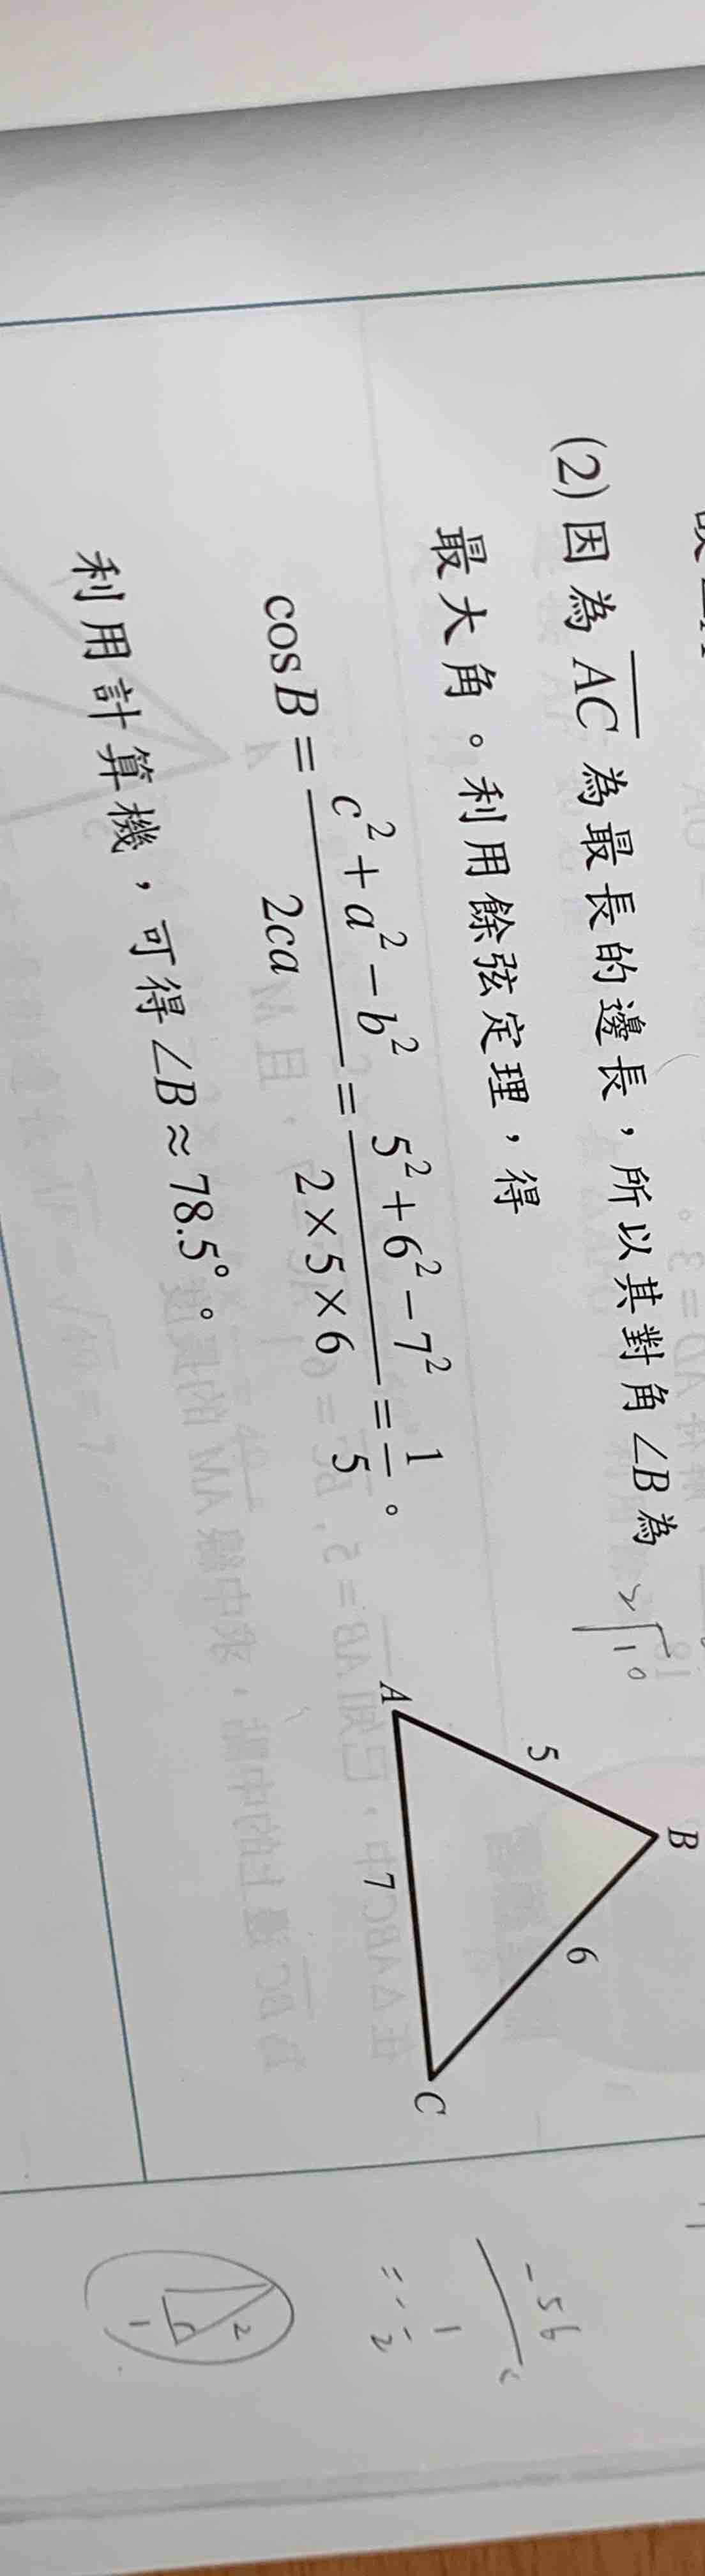 (2)因為 $\overline{AC}$ 為最長的邊長，所以其對角∠B為
最大角。利用餘弦定理，得
$\cos B = \frac{c^2+a^2-b^2}{2ca} = \frac{5^2+6^2-7^2}{2×5×6} = \frac{1}{5}$。
利用計算機，可得∠B≈78.5°。
B
5
6
A
7
C
-56
= -1/2
2
1